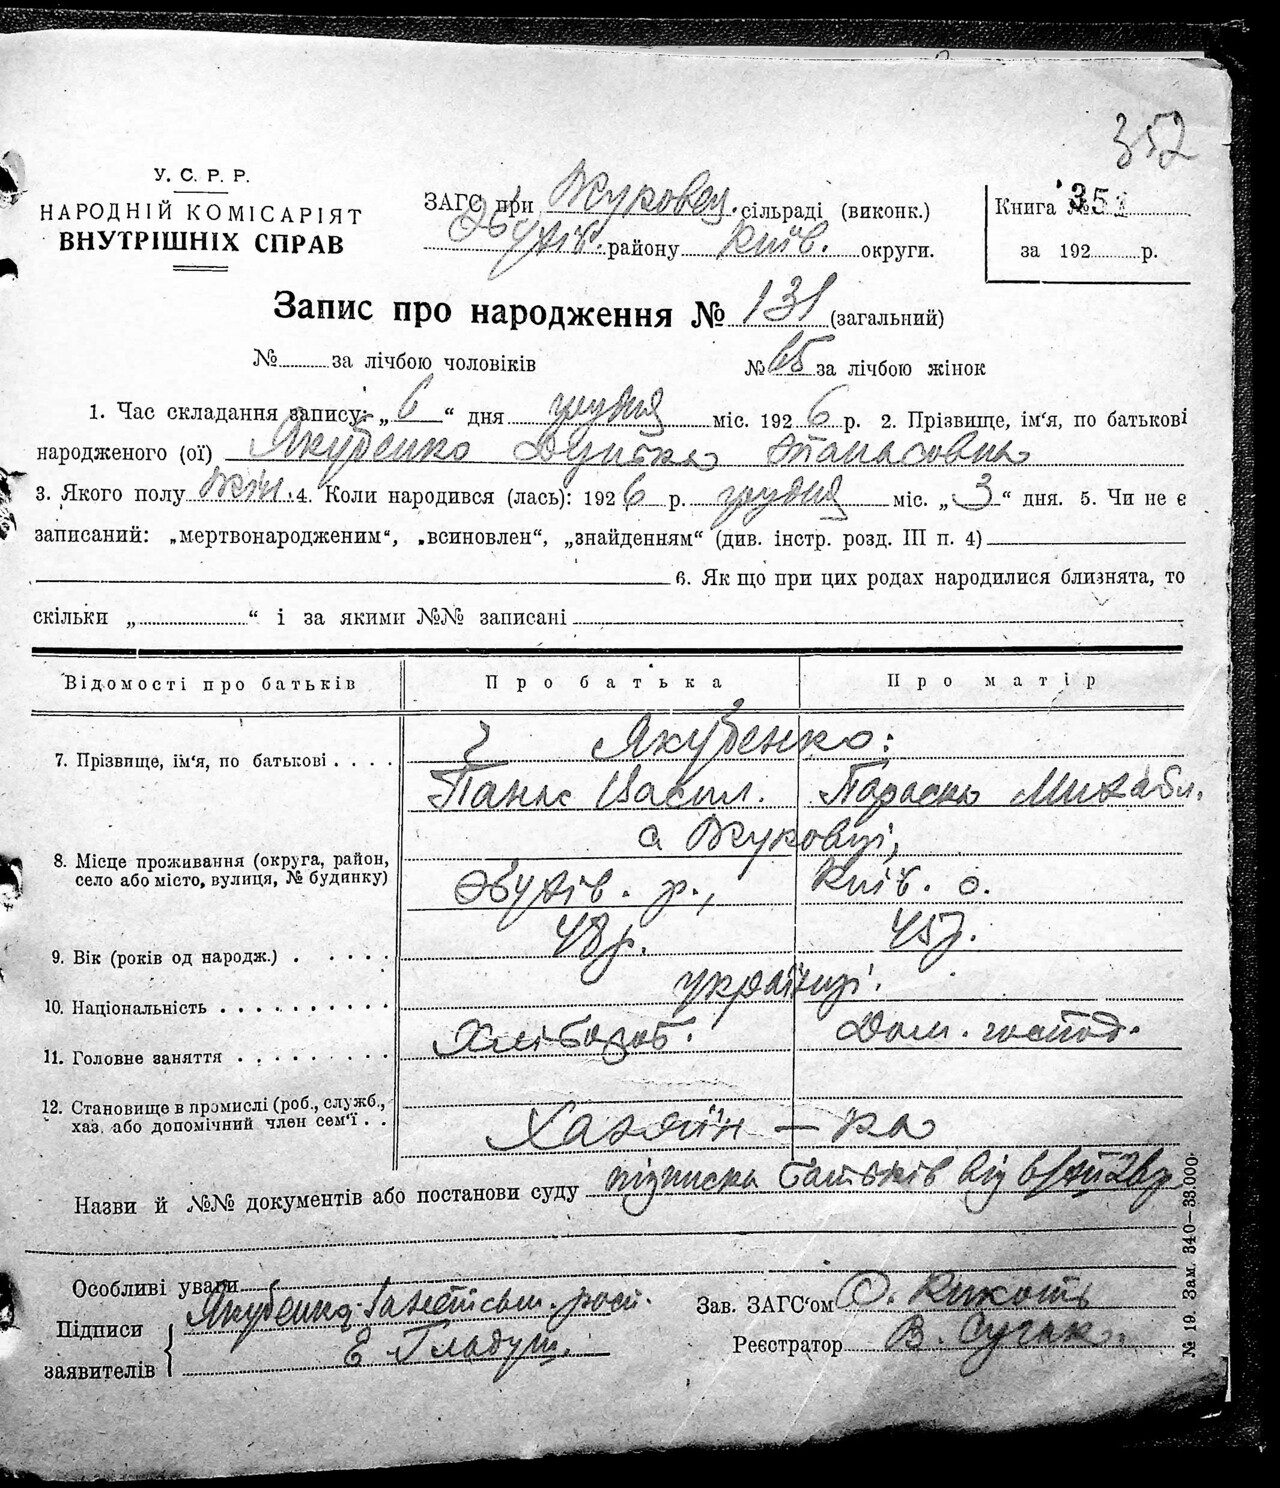 352
У. С. Р. Р.
НАРОДНІЙ КОМІСАРІЯТ
ВНУТРІШНІХ СПРАВ
ЗАГС при Жуковец. сільраді (виконк.)
Обухів. району Київ. округи.
Книга № 351
за 192 р.
Запис про народження № 131 (загальний)
№ за лічбою чоловіків № 65 за лічбою жінок
1. Час складання запису: „ 6 “ дня грудня міс. 1926 р. 2. Прізвище, ім‘я, по батькові
народженого (ої) Якубенко Панасовна
3. Якого полу Жін. 4. Коли народився (лась): 1926 р. грудня міс. „ 3 “ дня. 5. Чи не є
записаний: „мертвонародженим“, „всиновлен“, „знайденням“ (див. інстр. розд. III п. 4)
6. Як що при цих родах народилися близнята, то
скільки „ “ і за якими №№ записані
Відомості про батьків Про батька Про матір
7. Прізвище, ім‘я, по батькові Якубенко:
Панас Васил. Параска Михайл.
8. Місце проживання (округа, район,
село або місто, вулиця, № будинку)
с Жуковці,
Обухів. р., Київ. о.
9. Вік (років од народж.) 48 р. 45 р.
10. Національність українці.
11. Головне заняття Хлібороб. Дом. господ.
12. Становище в промислі (роб., служб.,
хаз. або допомічний член сем‘ї . .
Хазяїн — ка
Назви й №№ документів або постанови суду підписка батьків від 6/XII 26 р
Особливі уваги
Підписи
заявителів
Якубенко
Е Гладуш.
Зав. ЗАГС‘ом О. Кикоть
Реєстратор В. Сугак
№ 19. Зам. 340—38.000.